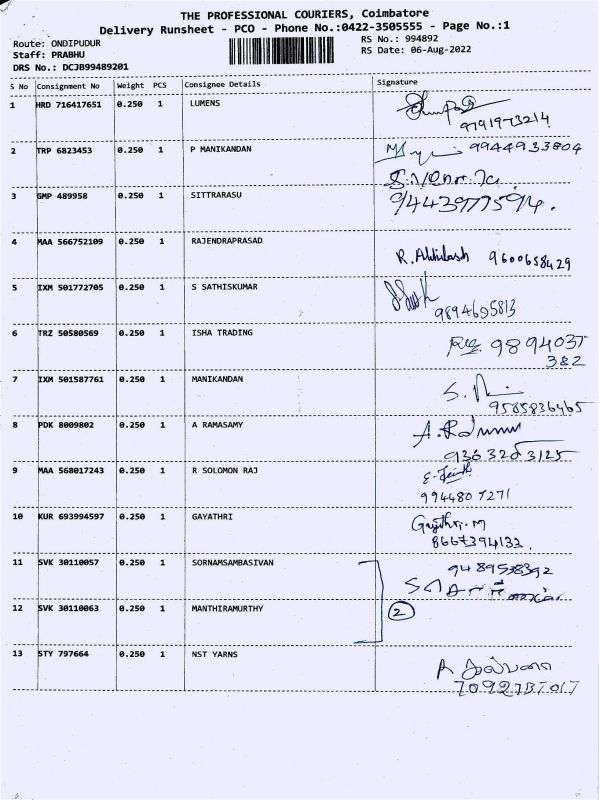 THE PROFESSIONAL COURIERS, Coimbatore
Delivery Runsheet - PCO - Phone No.:0422-3505555 - Page No.:1
Route: ONDIPUDUR RS No.: 994892
Staff: PRABHU RS Date: 06-Aug-2022
DRS No.: DCJB99489201
S No Consignment No Weight PCS Consignee Details Signature
1 HRD 716417651 0.250 1 LUMENS
9791973214
2 TRP 6823453 0.250 1 P MANIKANDAN 9944933804
3 GMP 489958 0.250 1 SITTRARASU
9443977594.
4 MAA 566752109 0.250 1 RAJENDRAPRASAD
R. Abhilash 9600658429
5 IXM 501772705 0.250 1 S SATHISKUMAR
9894695813
6 TRZ 50580569 0.250 1 ISHA TRADING
9894037
382
7 IXM 501587761 0.250 1 MANIKANDAN
9585836465
8 PDK 8009802 0.250 1 A RAMASAMY
9363203125
9 MAA 568017243 0.250 1 R SOLOMON RAJ
9944807271
10 KUR 693994597 0.250 1 GAYATHRI
Gayathri. M
8667394133.
11 SVK 30110057 0.250 1 SORNAMSAMBASIVAN
9489538392
12 SVK 30110063 0.250 1 MANTHIRAMURTHY 2
13 STY 797664 0.250 1 NST YARNS